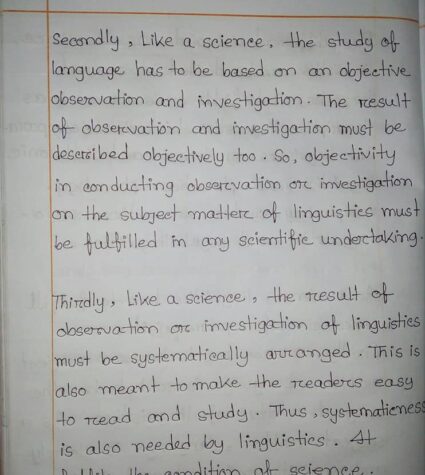 Secondly, Like a science, the study of
language has to be based on an objective
observation and investigation. The result
of observation and investigation must be
described objectively too. So, objectivity
in conducting observation or investigation
on the subject matter of linguistics must
be fulfilled in any scientific undertaking.
Thirdly, Like a science, the result of
observation or investigation of linguistics
must be systematically arranged. This is
also meant to make the readers easy
to read and study. Thus, systematicness
is also needed by linguistics. It
the condition of science.